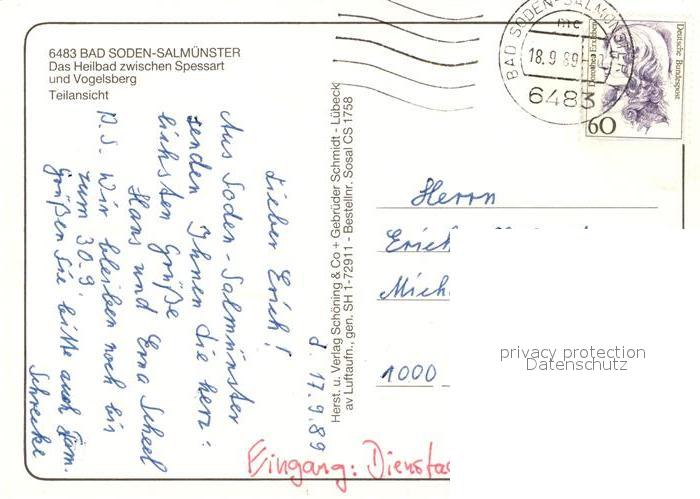 6483 BAD SODEN-SALMÜNSTER
Das Heilbad zwischen Spessart
und Vogelsberg
Teilansicht
d. 17.9.89
Lieber Erich!
Aus Soden-Salmünster
senden Ihnen die herz:
lichsten Grüße
Hans und Erna Scheel
P.S. Wir bleiben noch bis
zum 30.9.
Grüßen Sie bitte auch Fam.
Schrecke
Herst. u. Verlag Schöning & Co + Gebrüder Schmidt - Lübeck
av Luftaufn., gen. SH 1-72911 - Bestellnr. Sosal CS 1758
BAD SODEN-SALMÜNSTER
mc
18.9.89
6483
Deutsche Bundespost
60
Herrn
Erich
Mich
1000
privacy protection
Datenschutz
Eingang: Dienstag